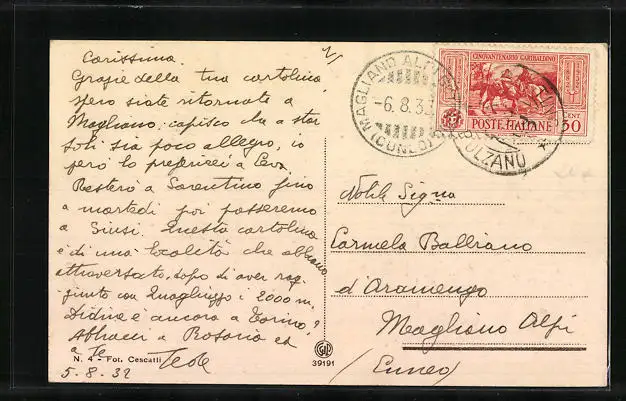 Carissima
Grazie della tua cartolina
spero siate ritornate a
Magliano, capisco che a star
soli sia poco allegro, io
però lo preferirei a
Resterò a Sarentino fino
a martedì poi passeremo
a Siusi. Questa cartolina
è di una località che abbiamo
attraversato, dopo di aver rag
giunto con i 2000 m.
è ancora a Torino?
Abbracci a Rosaria ed
a Te
5.8.32
N. 4 - Fot. Cescatti
39191
MAGLIANO ALPI
-6.8.32
(CUNEO)
CINQUANTENARIO GARIBALDINO
POSTE ITALIANE
CENT 50
BOLZANO
Nobile Sigra
Carmela Balbiano
d'Aramengo
Magliano Alpi
(Cuneo)